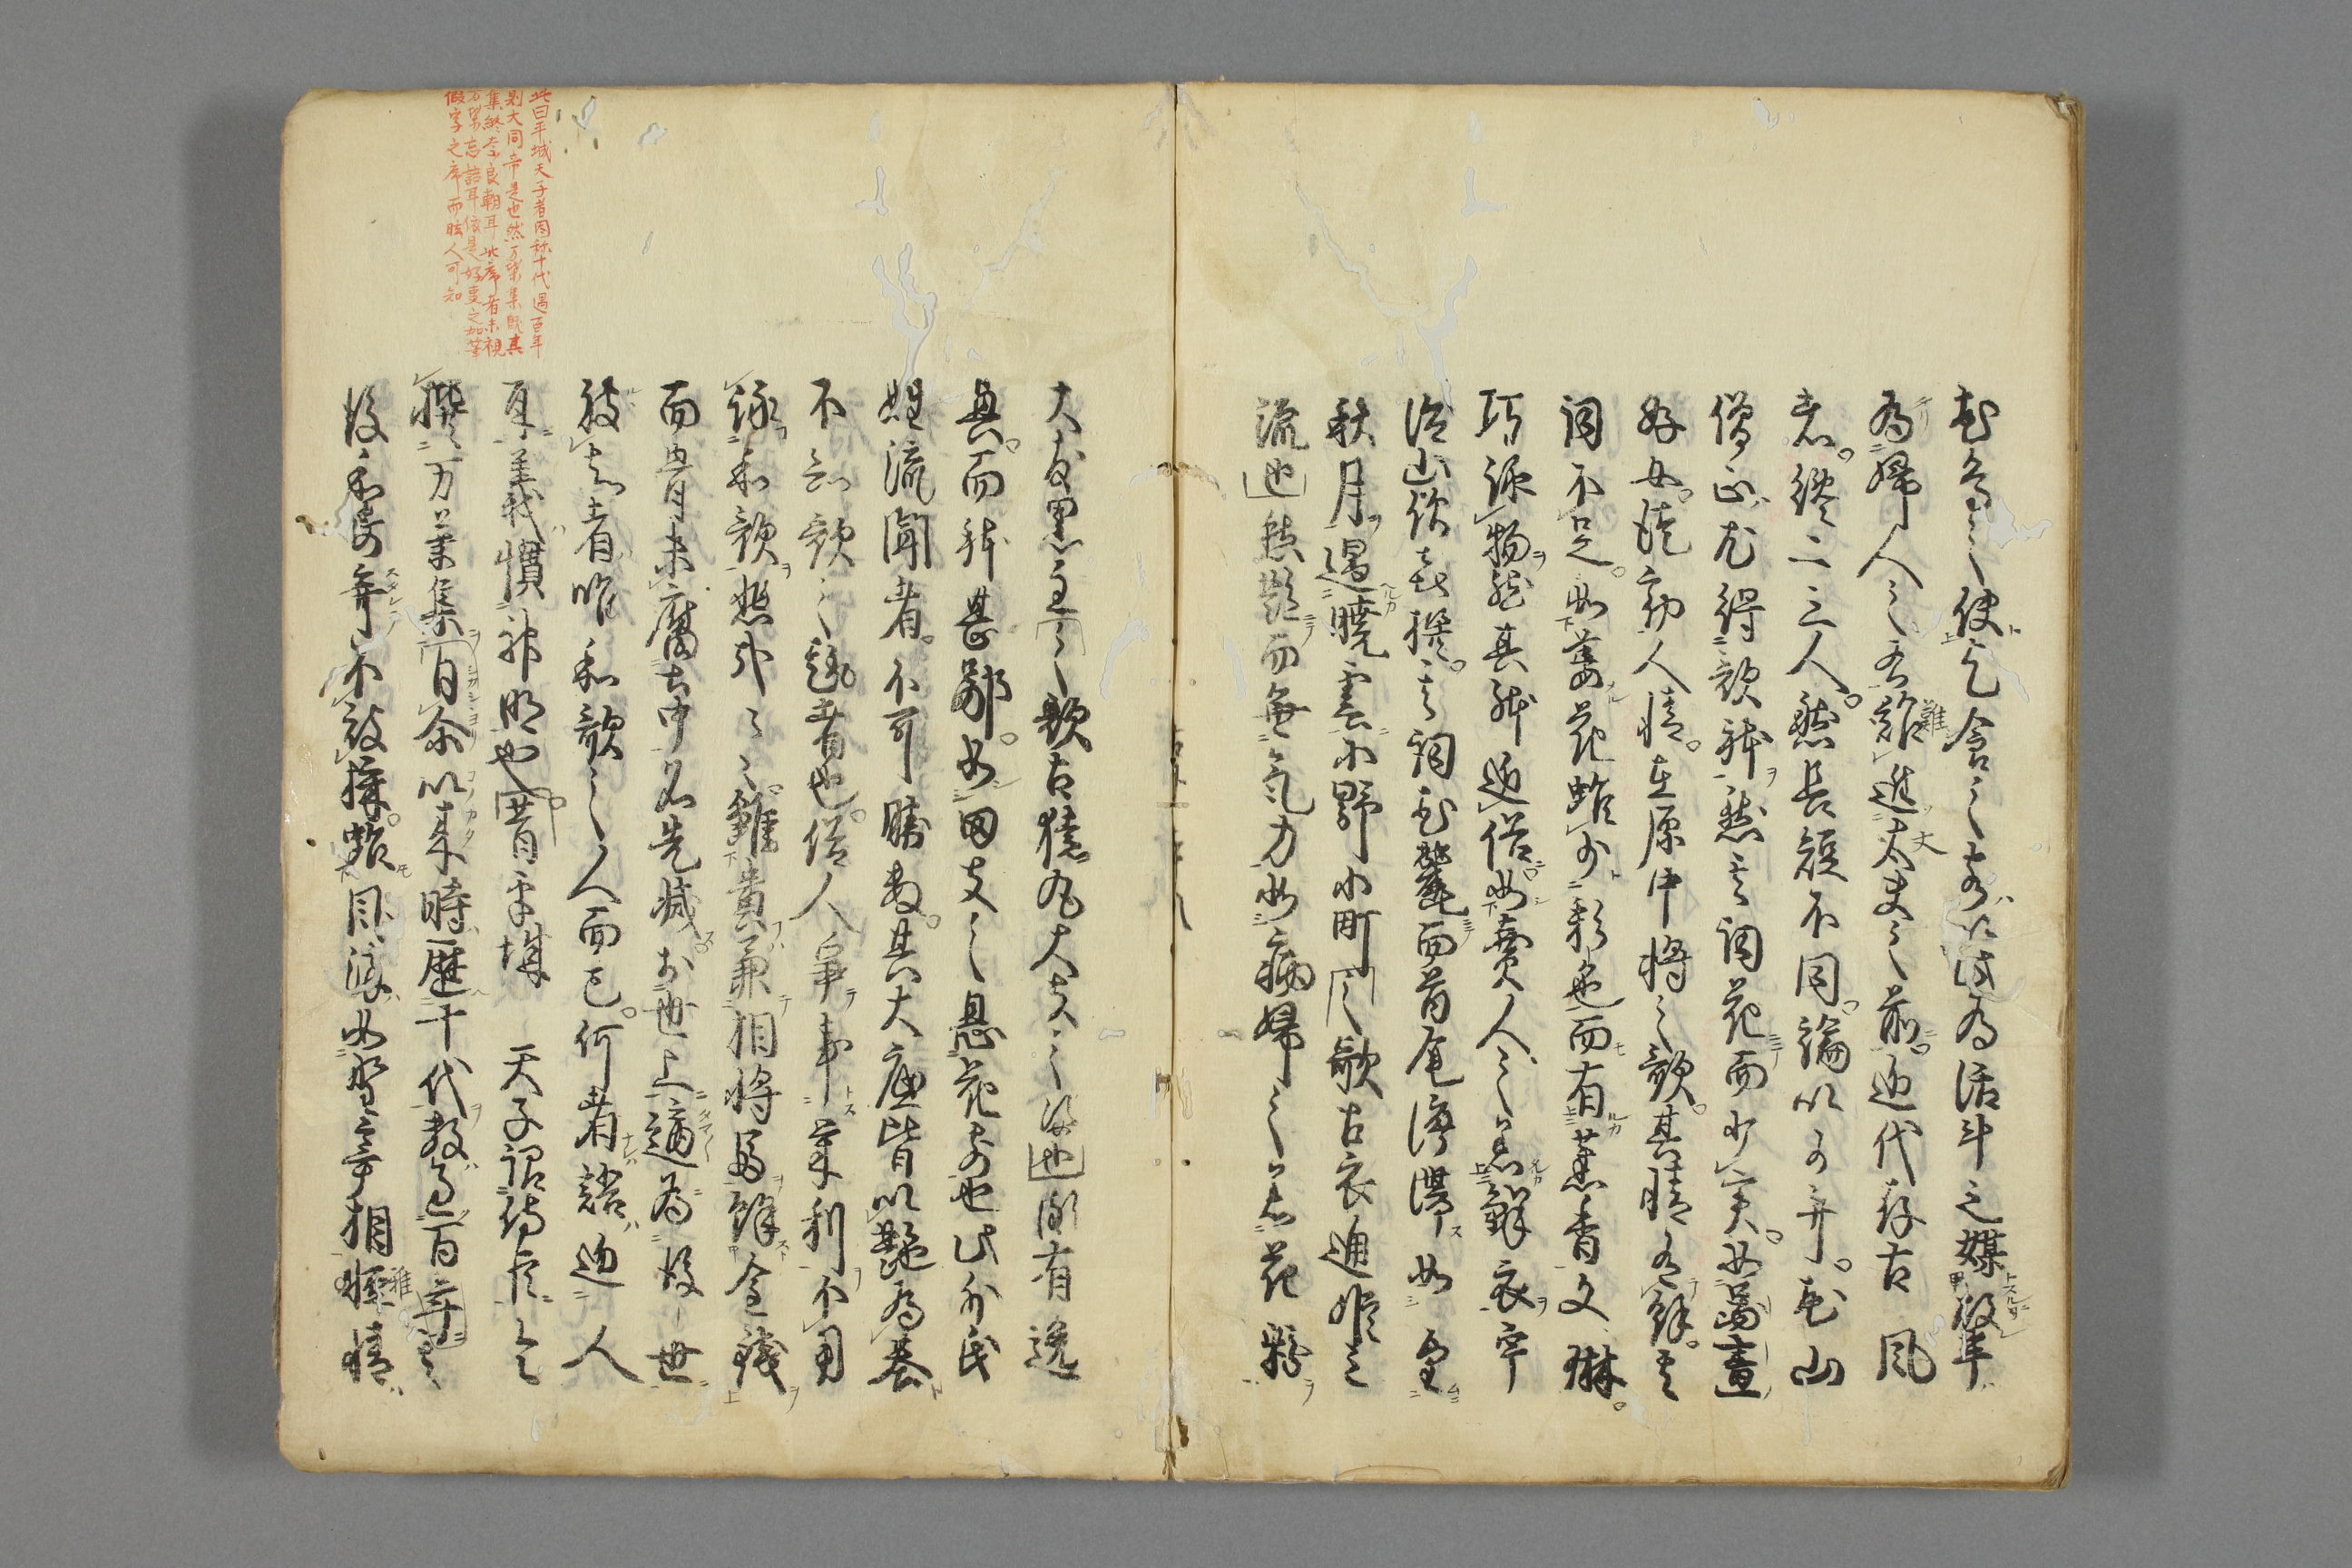 花鳥之使乞食之客以此為活計之媒故半
為婦人之右難進大夫之前近代存古風
者纔二三人然長短不同論以可弁花山
僧正尤得歌体然其詞花而少実如図画
好女徒動人情在原中将之歌其情有餘其
詞不足如萎花雖少彩色而有薫香文琳
巧詠物然其体近俗如賈人之着鮮衣宇
治山僧喜撰其詞花麗而首尾停滞如望
秋月遇暁雲小野小町之歌古衣通姫之
流也然艶而無気力如病婦之着花粉
大友黒主之歌古猿丸大夫之次也頗有逸
興而体甚鄙如田夫之息花前也此外氏
姓流聞者不可勝数其大底皆以艶為基
不知歌之趣者也俗人争事栄利不用
詠和歌悲哉々々雖貴兼相将富餘金銭
而骨未腐土中名先滅於世上適為後世
被知者唯和歌之人而已何者語近人
耳義慣神明也昔平城天子詔侍臣令
撰万葉集自尓以来時歴十代数過百年其
後和歌弃不被採雖風流如野宰相軽情
此曰平城天子者因称十代過百年
則大同帝是也然万葉集既其
集終奈良朝耳此序者未視
假字之序而眩人可知